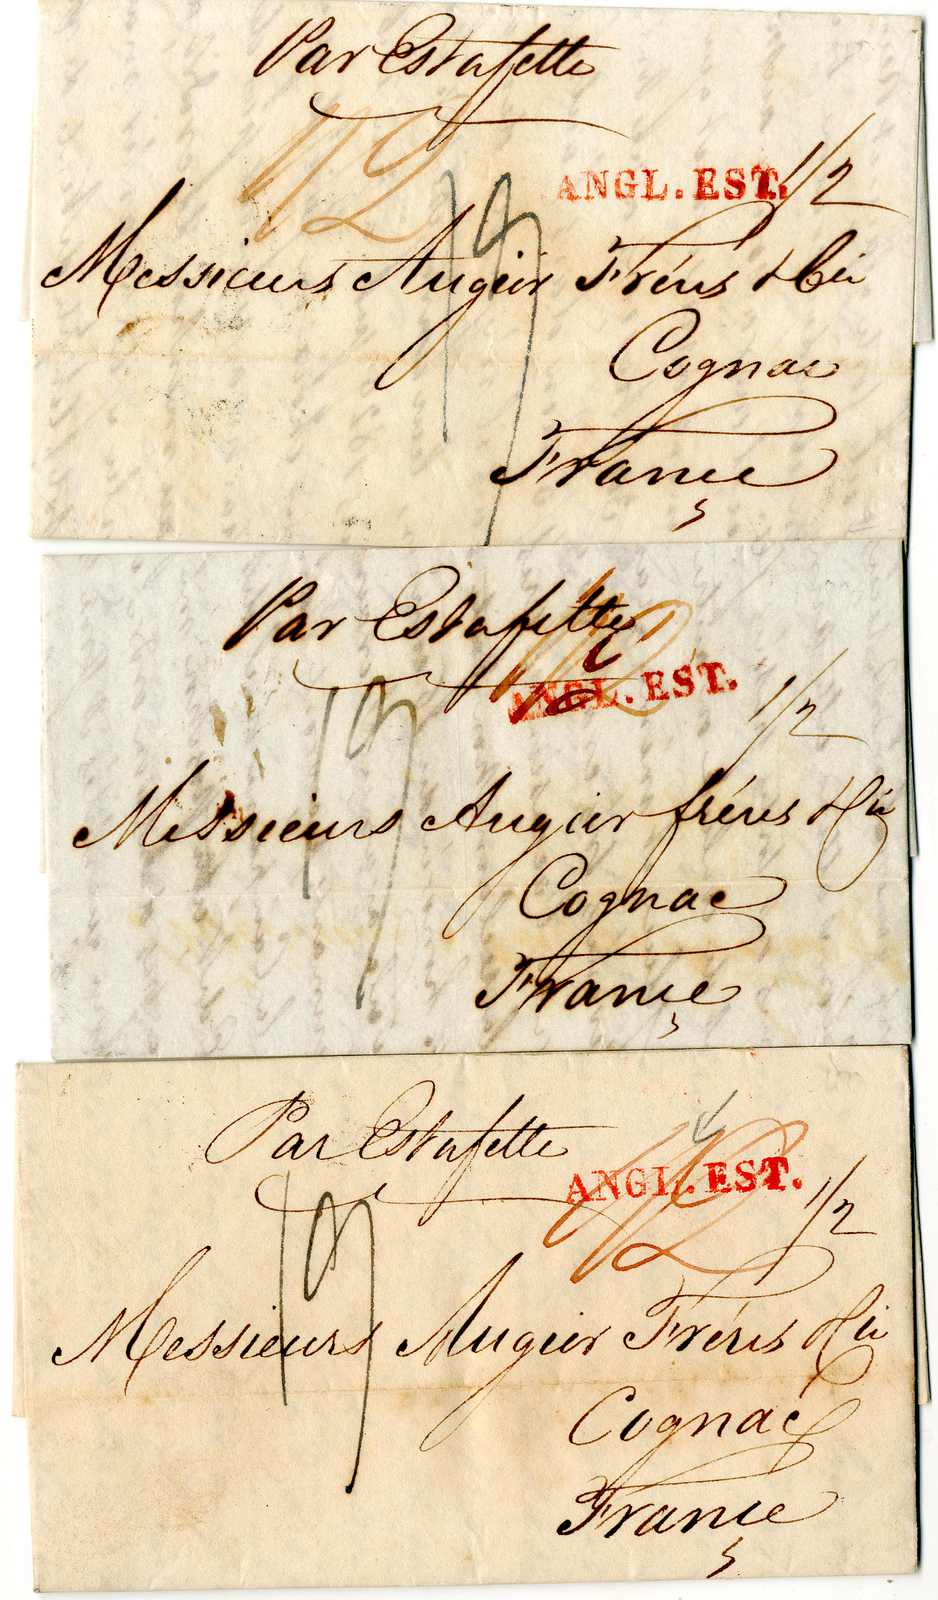 Par Estafette
1/2
ANGL. EST.
1/2
19
Messieurs Augier Fréres & Cie
Cognac
France
Par Estafette
1/2
ANGL. EST.
1/2
19
Messieurs Augier fréres & Cie
Cognac
France
Par Estafette
1/2
ANGL. EST.
1/2
19
Messieurs Augier Fréres & Cie
Cognac
France